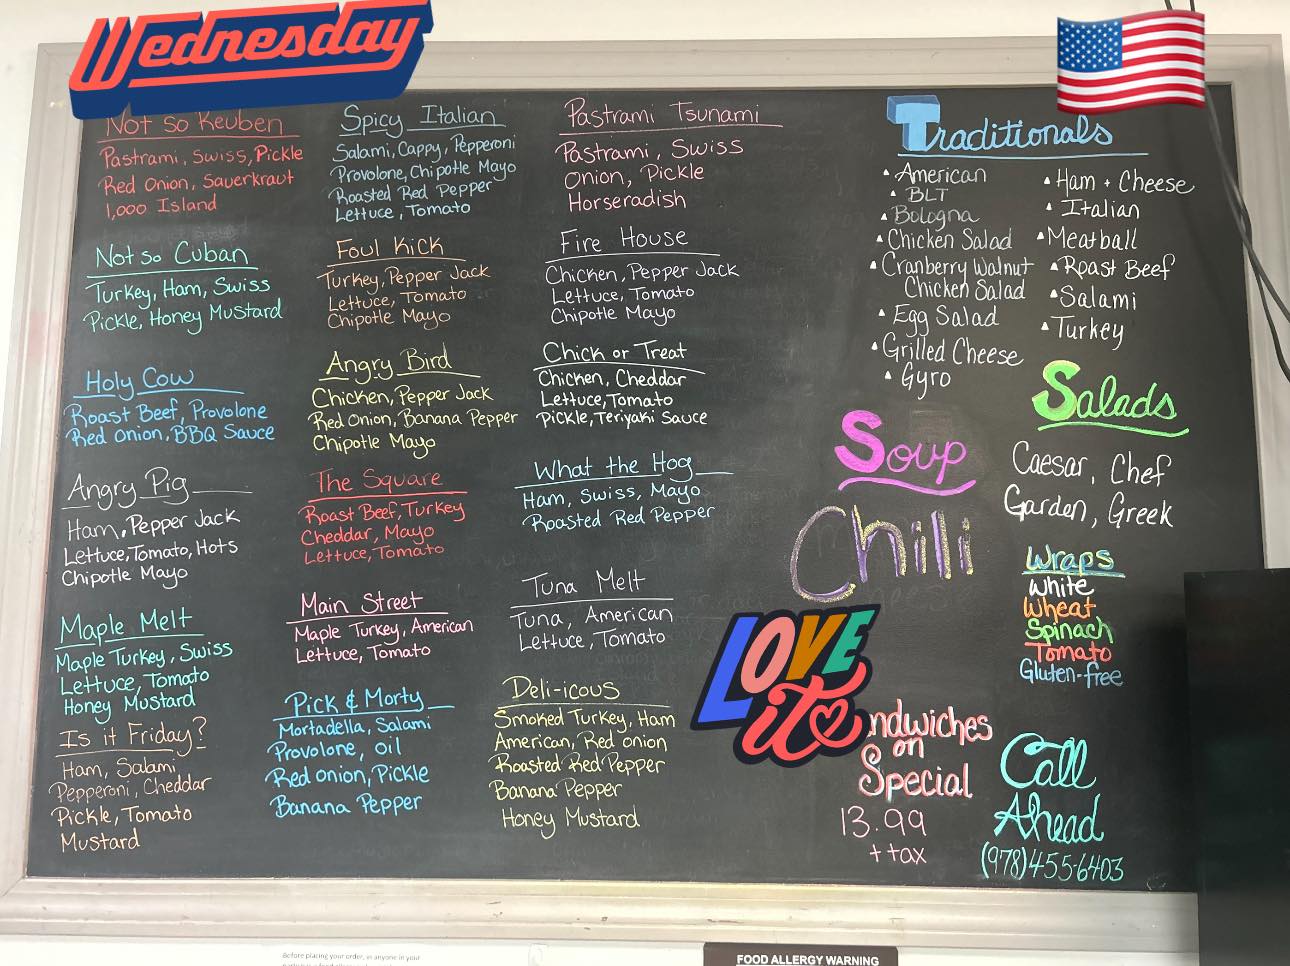 Wednesday
Not so Reuben
Pastrami, Swiss, Pickle
Red Onion, Sauerkraut
1,000 Island
Not so Cuban
Turkey, Ham, Swiss
Pickle, Honey Mustard
Holy Cow
Roast Beef, Provolone
Red Onion, BBQ Sauce
Angry Pig
Ham, Pepper Jack
Lettuce, Tomato, Hots
Chipotle Mayo
Maple Melt
Maple Turkey, Swiss
Lettuce, Tomato
Honey Mustard
Is it Friday?
Ham, Salami
Pepperoni, Cheddar
Pickle, Tomato
Mustard
Spicy Italian
Salami, Cappy, Pepperoni
Provolone, Chipotle Mayo
Roasted Red Pepper
Lettuce, Tomato
Foul Kick
Turkey, Pepper Jack
Lettuce, Tomato
Chipotle Mayo
Angry Bird
Chicken, Pepper Jack
Red Onion, Banana Pepper
Chipotle Mayo
The Square
Roast Beef, Turkey
Cheddar, Mayo
Lettuce, Tomato
Main Street
Maple Turkey, American
Lettuce, Tomato
Pick & Morty
Mortadella, Salami
Provolone, Oil
Red Onion, Pickle
Banana Pepper
Pastrami Tsunami
Pastrami, Swiss
Onion, Pickle
Horseradish
Fire House
Chicken, Pepper Jack
Lettuce, Tomato
Chipotle Mayo
Chick or Treat
Chicken, Cheddar
Lettuce, Tomato
Pickle, Teriyaki Sauce
What the Hog
Ham, Swiss, Mayo
Roasted Red Pepper
Tuna Melt
Tuna, American
Lettuce, Tomato
Deli-icous
Smoked Turkey, Ham
American, Red Onion
Roasted Red Pepper
Banana Pepper
Honey Mustard
Traditionals
American
BLT
Bologna
Chicken Salad
Cranberry Walnut
Chicken Salad
Egg Salad
Grilled Cheese
Gyro
Ham + Cheese
Italian
Meatball
Roast Beef
Salami
Turkey
Soup
Chili
LOVE
it
Salads
Caesar, Chef
Garden, Greek
Wraps
White
Wheat
Spinach
Tomato
Gluten-free
ndwiches
on
Special
13.99
+ tax
Call
Ahead
(978)455-6403
Before placing your order, in anyone in your
FOOD ALLERGY WARNING